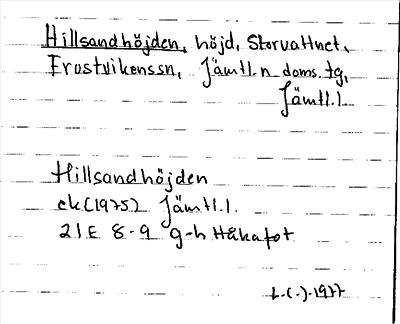 Hillsandhöjden, höjd, Storvattnet,
Frostvikenssn, Jämtl. n doms. tg,
Jämtl. l
Hillsandhöjden
ek (1975) Jämtl. l.
21E 8-9 g-h Håkafot
1977